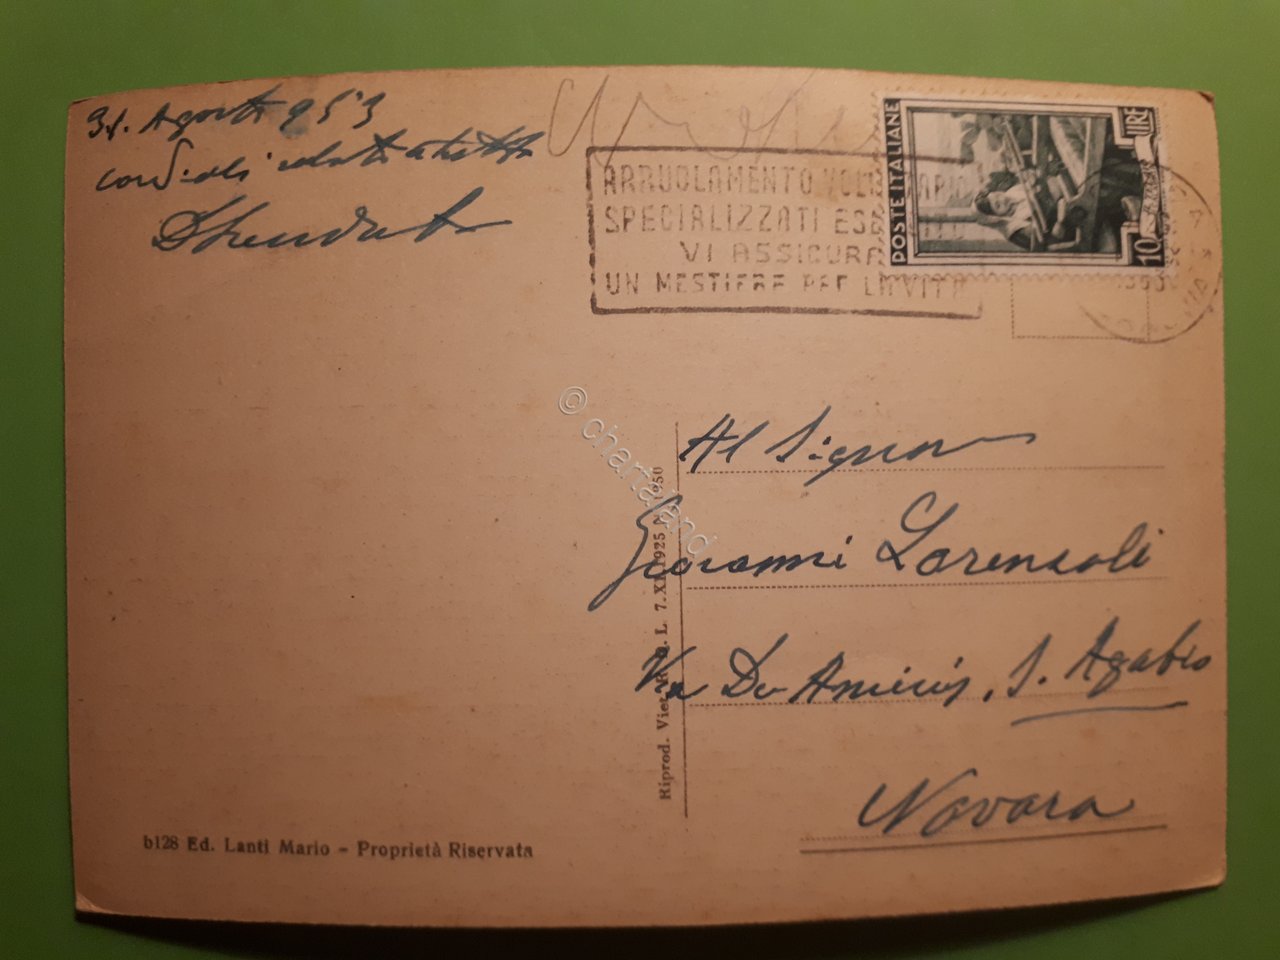 31. Agosto 953
cordiali saluti a tutti
ARRUOLAMENTO VOLONTARIO
SPECIALIZZATI ESERCITO
VI ASSICURA
UN MESTIERE PER LA VITA
POSTE ITALIANE
10 LIRE
© chartaland
Al Signor
Giovanni Lorenzoli
Via De Amicis, S. Agabio
Novara
Riprod. Viet. R. D. L. 7.XI.1925 N. 1950
b128 Ed. Lanti Mario - Proprietà Riservata